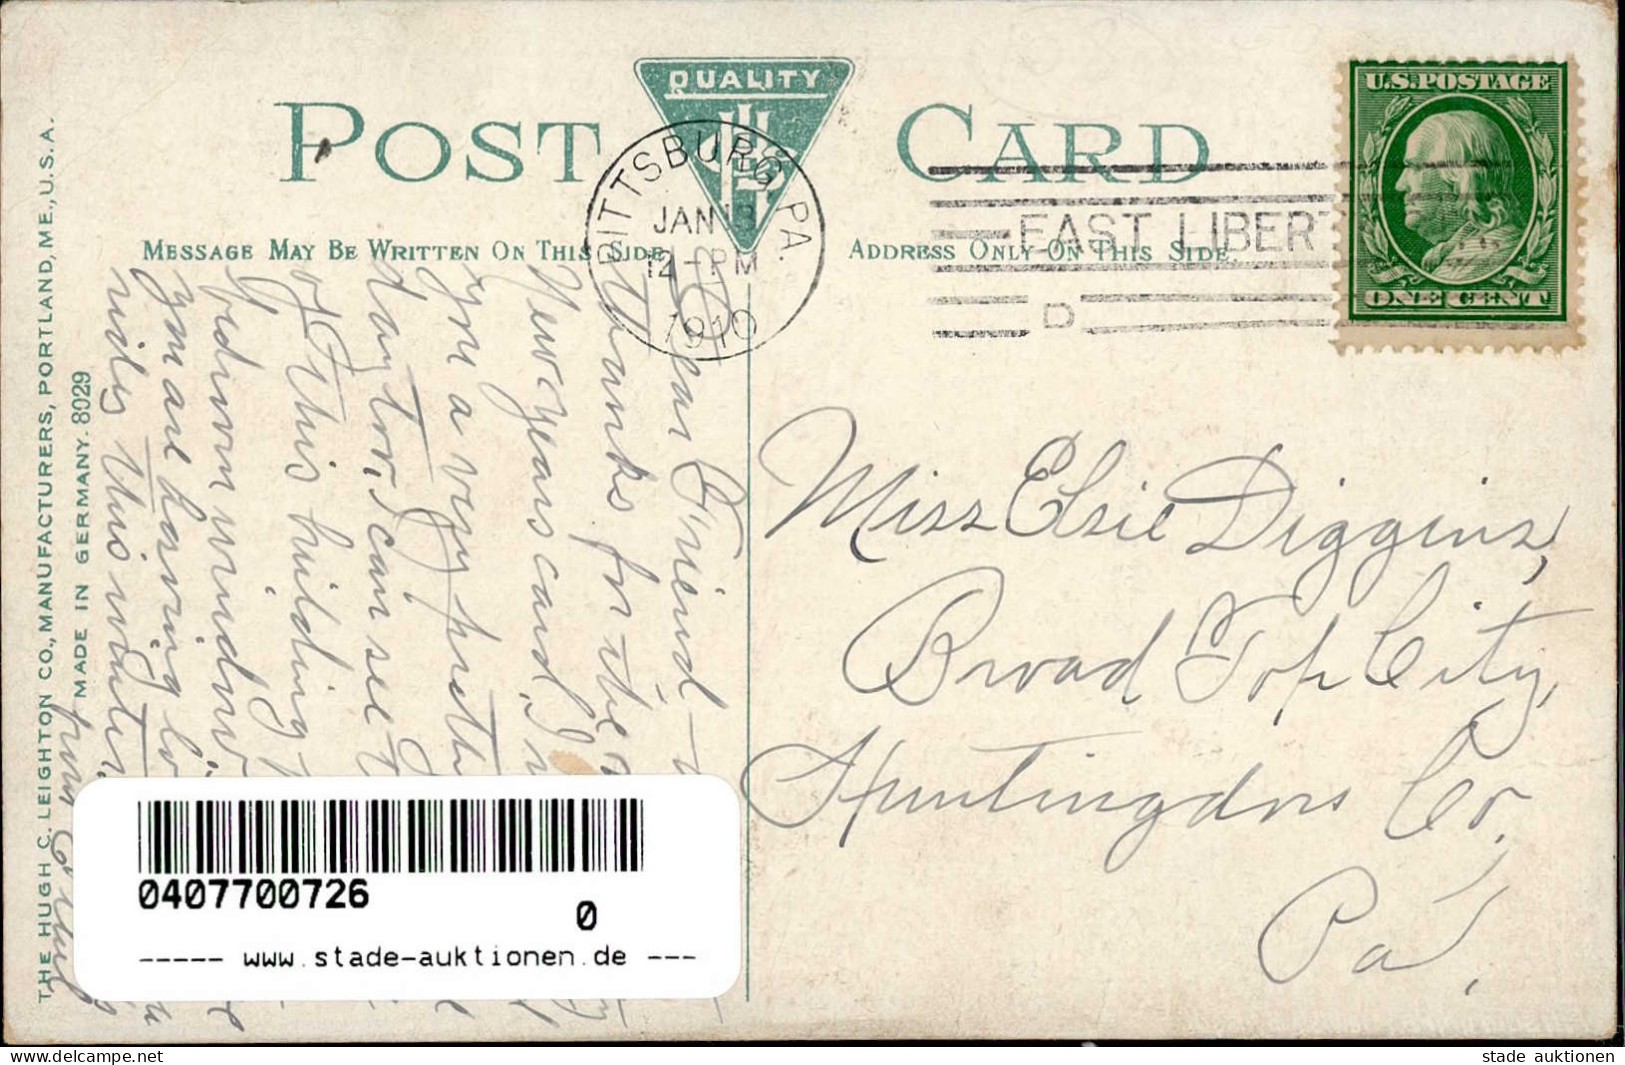 POST CARD
QUALITY
PITTSBURG, PA.
JAN 18
12-PM
1910
EAST LIBERT
D
U.S.POSTAGE
ONE CENT
MESSAGE MAY BE WRITTEN ON THIS SIDE
ADDRESS ONLY ON THIS SIDE
THE HUGH C. LEIGHTON CO., MANUFACTURERS, PORTLAND, ME., U.S.A.
MADE IN GERMANY. 8029
Dear Friend
Thanks for the
New Years card, I
you a very prett
day tor, I can see
of this building
bedroom window
you are having
this winter
from
Miss Elsie Diggins,
Broad Top City,
Huntingdon Co.
Pa,
0407700726
0
----- www.stade-auktionen.de ---
©www.delcampe.net
stade auktionen